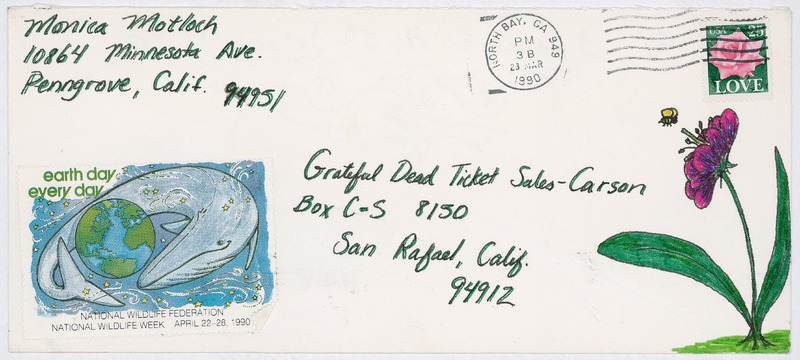 Monica Motloch
10864 Minnesota Ave.
Penngrove, Calif. 94951
NORTH BAY, CA 949
PM
3B
23 MAR
1990
USA 25
LOVE
earth day
every day
NATIONAL WILDLIFE FEDERATION
NATIONAL WILDLIFE WEEK APRIL 22-28, 1990
Grateful Dead Ticket Sales-Carson
Box C-S 8150
San Rafael, Calif.
94912